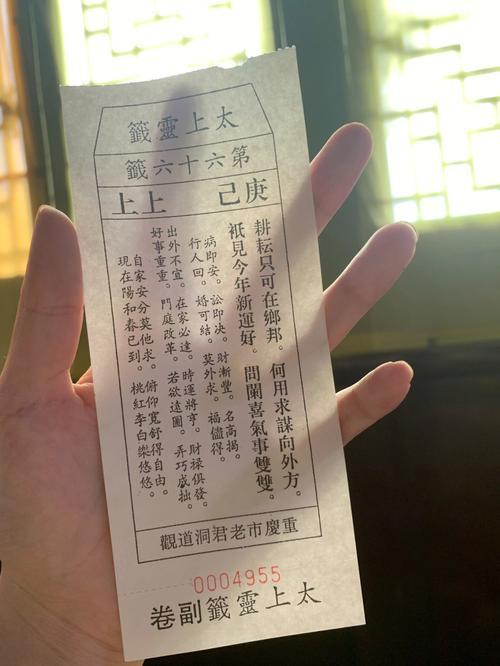 太上靈籤
第六十六籤
庚己 上上
耕耘只可在鄉邦。何用求謀向外方。
祇見今年新運好。問闌喜氣事雙雙。
病即安。訟即决。財漸豐。名高揭。
行人回。婚可結。莫外求。福儘得。
出外不宜。在家必達。時運將亨。財祿俱發。
好事重重。門庭改革。若欲遠圖。弄巧成拙。
自家安分莫他求。俯仰寬舒得自由。
現在陽和春已到。桃紅李白樂悠悠。
重慶市老君洞道觀
0004955
太上靈籤副卷